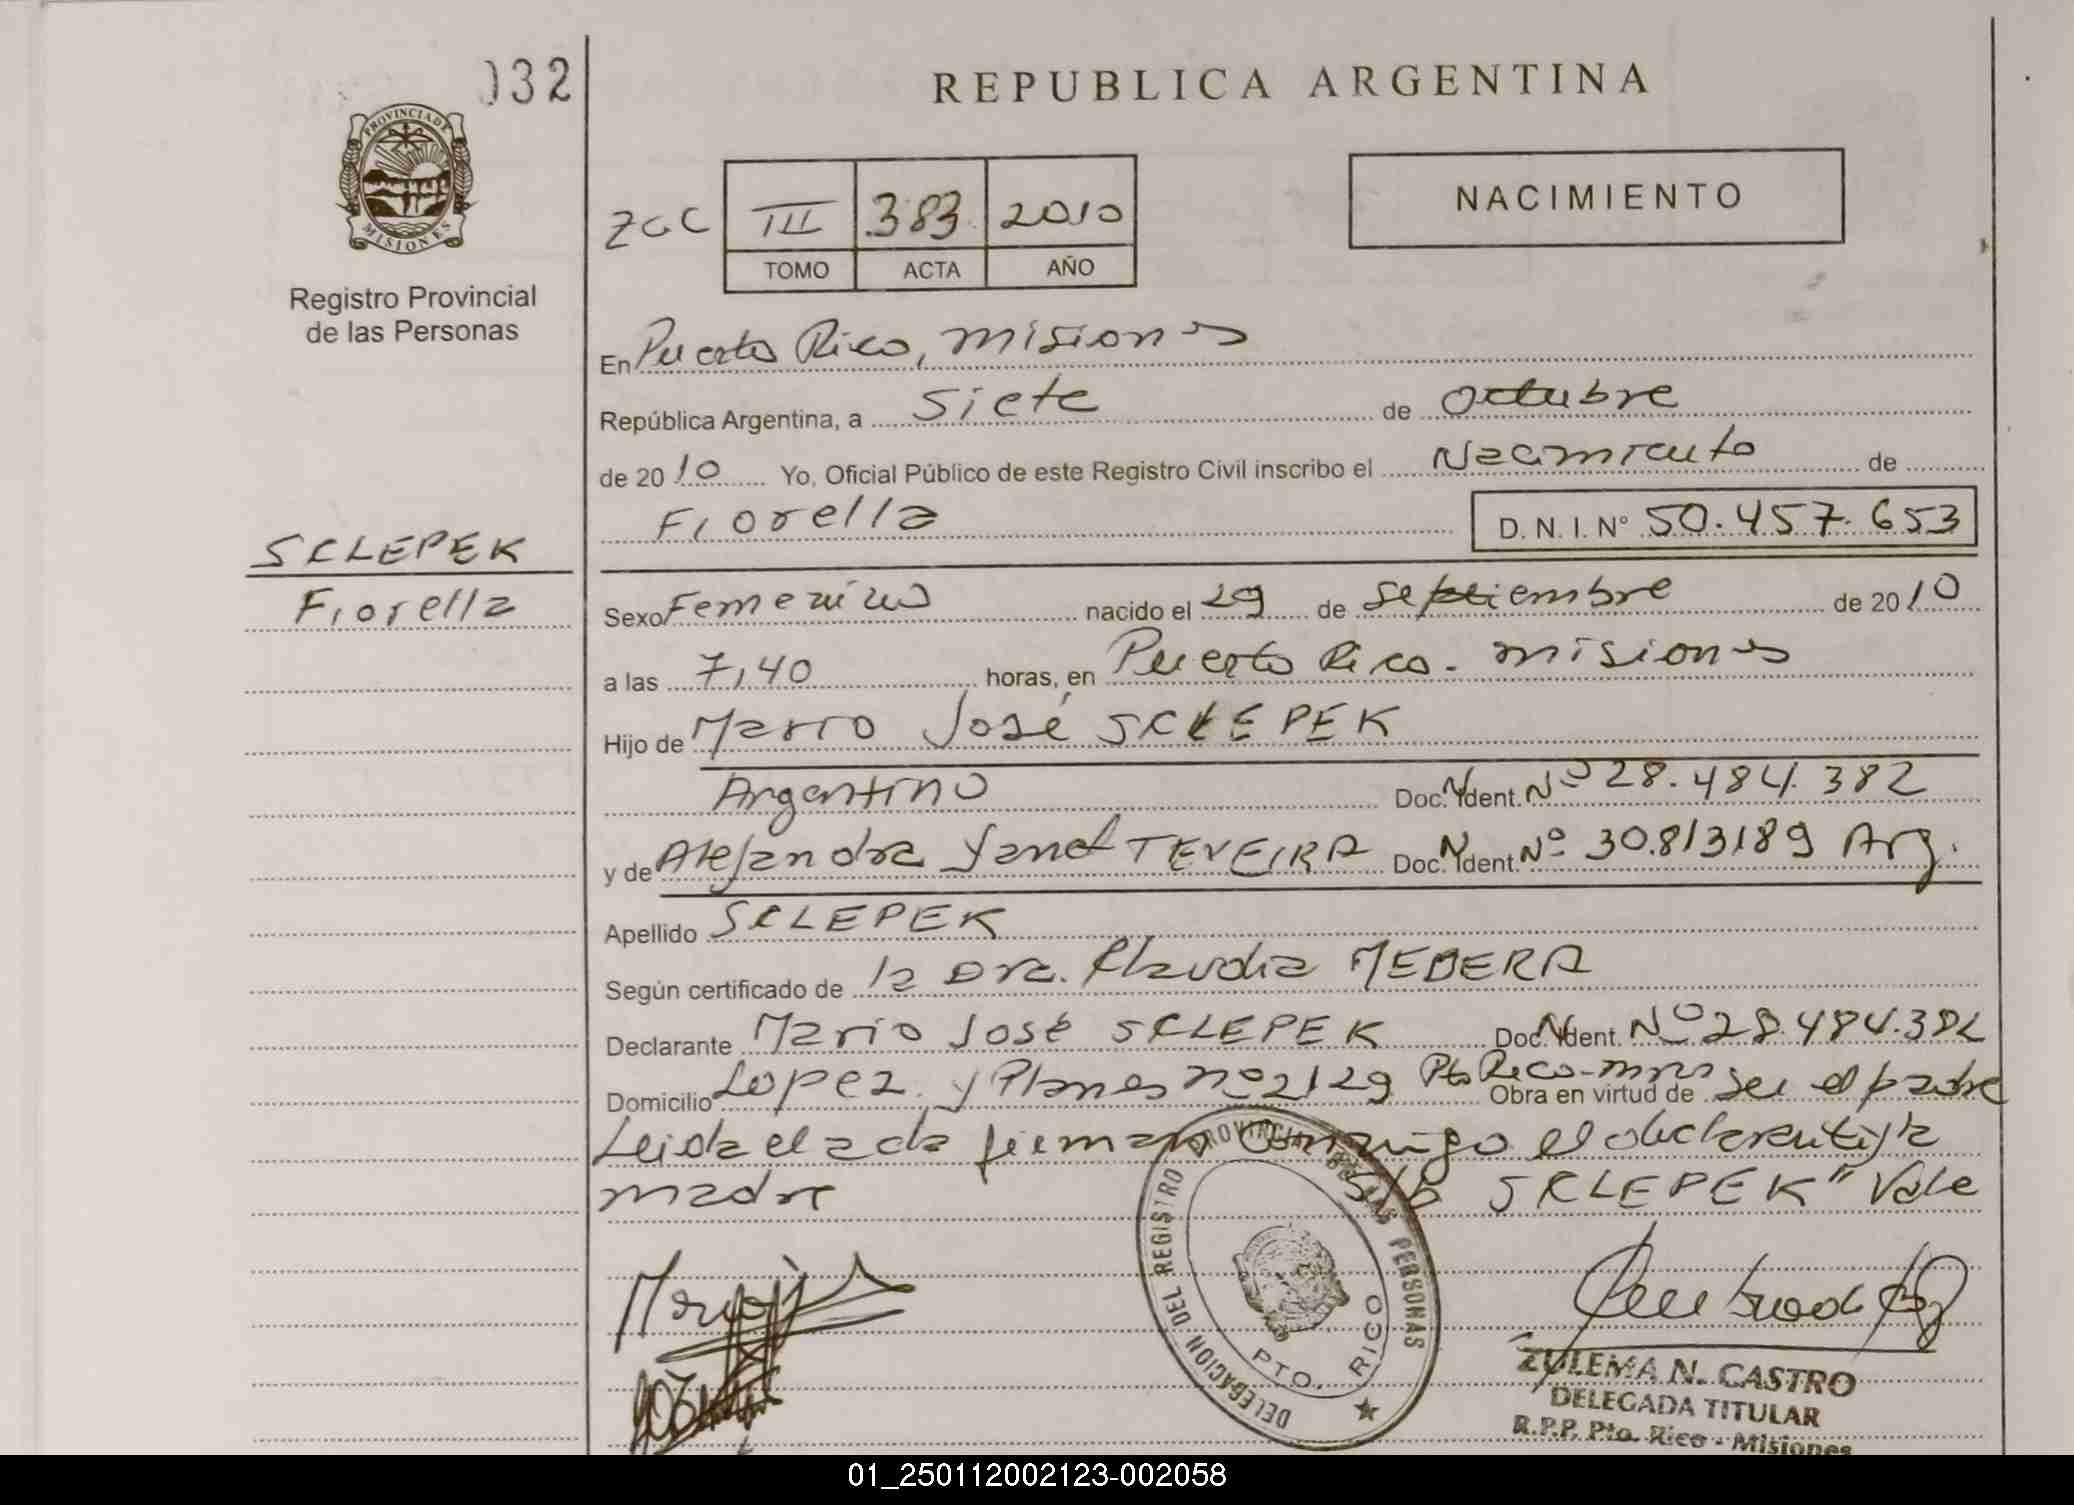 032
REPUBLICA ARGENTINA
PROVINCIA DE MISIONES
ZGC III 383 2010
TOMO ACTA AÑO
NACIMIENTO
Registro Provincial
de las Personas
En Puerto Rico, Misiones
República Argentina, a siete de octubre
de 2010 Yo, Oficial Público de este Registro Civil inscribo el Nacimiento de
Fiorella D. N. I. N° 50.457.653
SCLEPEK
Fiorella
Sexo Femenino nacido el 29 de septiembre de 2010
a las 7,40 horas, en Puerto Rico. Misiones
Hijo de Mario José SCLEPEK
Argentino Doc. Ident. Nº 28.484.382
y de Alejandra Yanet TEVEIRA Doc. Ident. Nº 30.813189 Arg.
Apellido SCLEPEK
Según certificado de la Dra. Claudia MEBERA
Declarante Mario José SCLEPEK Doc. Ident. Nº 28.484.382
Domicilio Lopez y Planes nº 2129 Pto Rico-mnes Obra en virtud de ser el padre
Leida el acta firman conmigo el declarante y la
madre S/b SCLEPEK" Vale
DELEGACION DEL REGISTRO PROVINCIAL DE LAS PERSONAS
PTO. RICO
ZULEMA N. CASTRO
DELEGADA TITULAR
R.P.P. Pto. Rico - Misiones
01_250112002123-002058